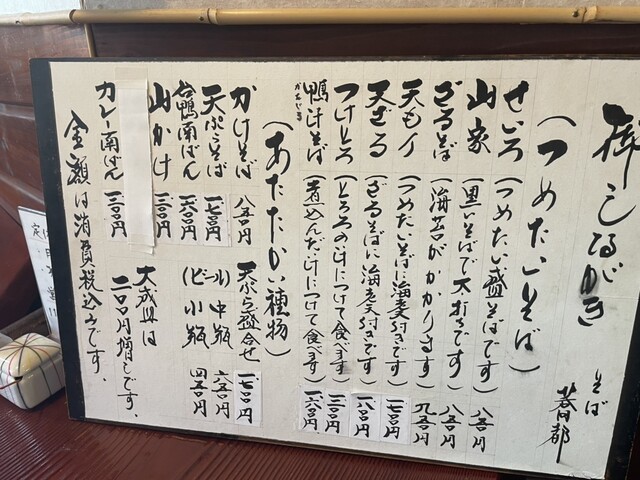 御しながき
そば 蕎都
(つめたいそば)
せいろ (つめたい盛そばです) 八五〇円
山家 (黒いそばで太打ちです) 八五〇円
ざるそば (海苔がかかります) 九五〇円
天もり (つめたいそばに海老天付きです) 一七〇〇円
天ざる (ざるそばに海老天付きです) 一八〇〇円
つけとろ (とろろの汁につけて食べます)
鴨汁そば (煮込んだ汁につけて食べます) 一六〇〇円
かもじる
(あたたかい種物)
かけそば 八五〇円
天ぷらそば 一七〇〇円
鴨南ばん 一六〇〇円
山かけ
カレー南ばん
天ぷら盛合せ
(ビール) 中瓶 六五〇円
(ビ 小瓶 四五〇円
大盛りは
二〇〇円増しです、
金額は消費税込みです。